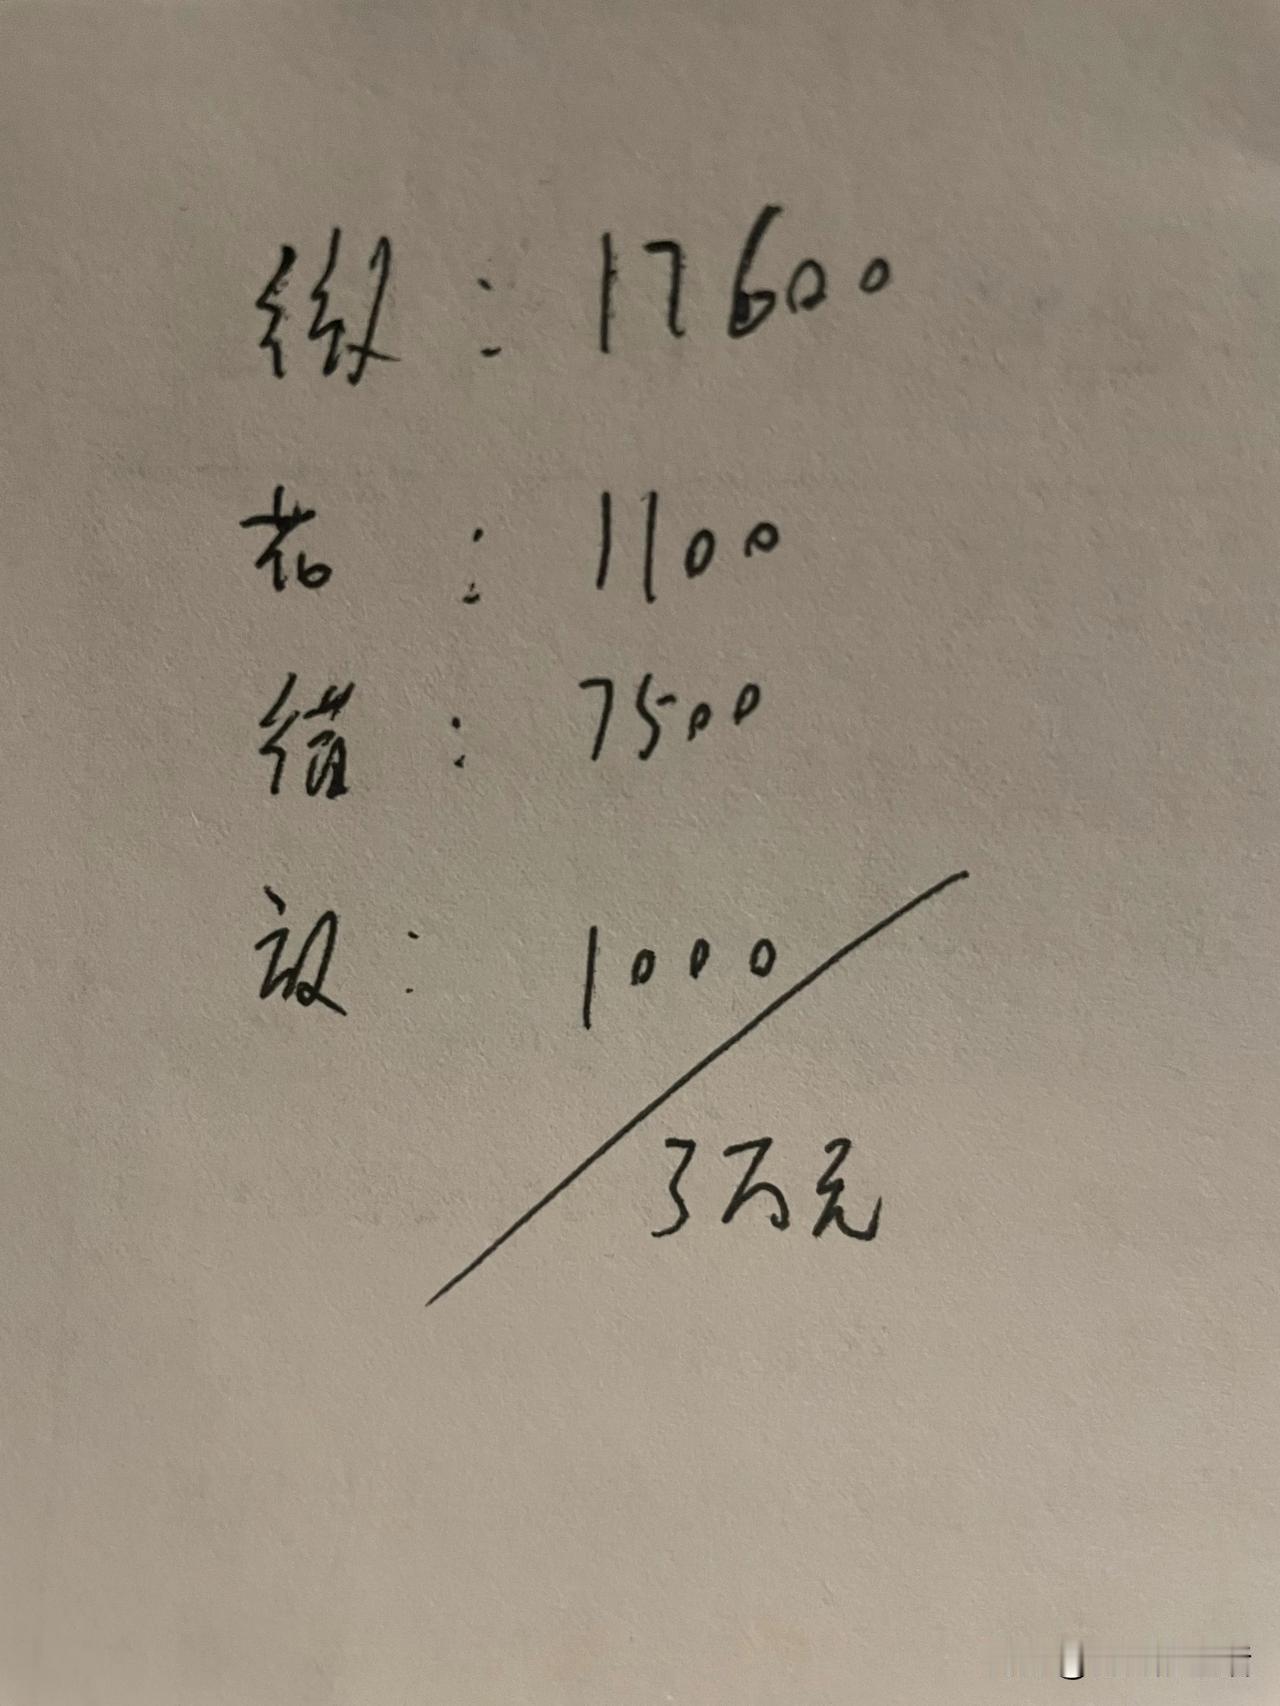 缴：17600
花：1100
：7500
放：1000
3万元